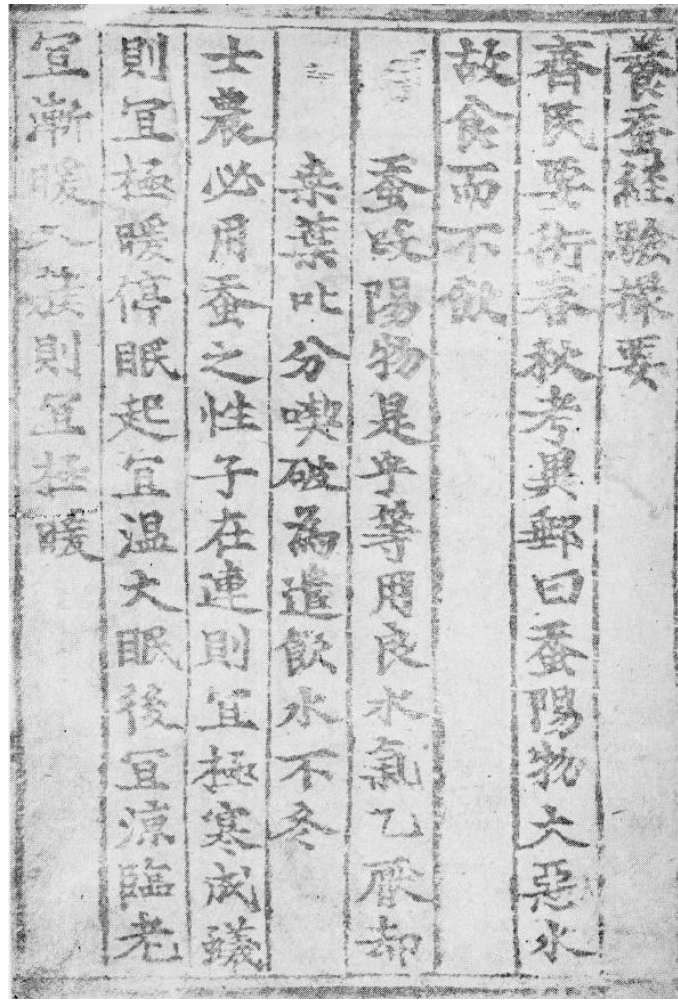 養蚕經驗撮要
齊民要術春秋考異郵曰蚕陽物大惡水
故食而不飮
蚕段陽物是乎等用良水氣乙厭却
桒葉叱分喫破爲遣飮水不冬
士農必用蚕之性子在連則冝極寒成蟻
則冝極暖停眠起冝温大眠後冝凉臨老
冝漸暖入蔟則冝極暖